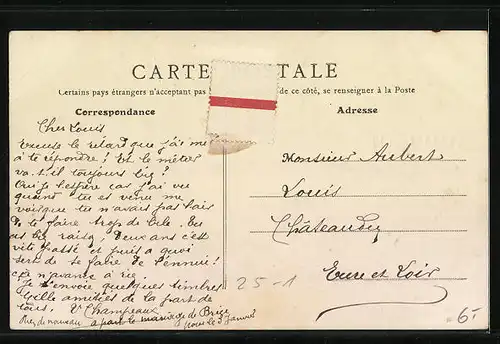 CARTE POSTALE
Certains pays étrangers n'acceptant pas de ce côté, se renseigner à la Poste
Correspondance
Cher Louis
Excuse le retard que j'ai mis
à te répondre! Et le métier
va-t-il toujours bien?
Oui je l'espère car j'ai vu
quand tu es venu me
voir que tu n'avais pas l'air
de te faire trop de bile. Tu
as bien raison, Deux ans c'est
vite passé et puis à quoi
sert de se faire de l'ennui!
ça n'avance à rien.
Je t'envoie quelques timbres
Mille amitiés de la part de
tous. Vr Champeaux
Rien de nouveau à part le mariage de
pour le 3 Janvier
Adresse
Monsieur Aubert
Louis
Châteaudun
Eure et Loir
25-1
6.-